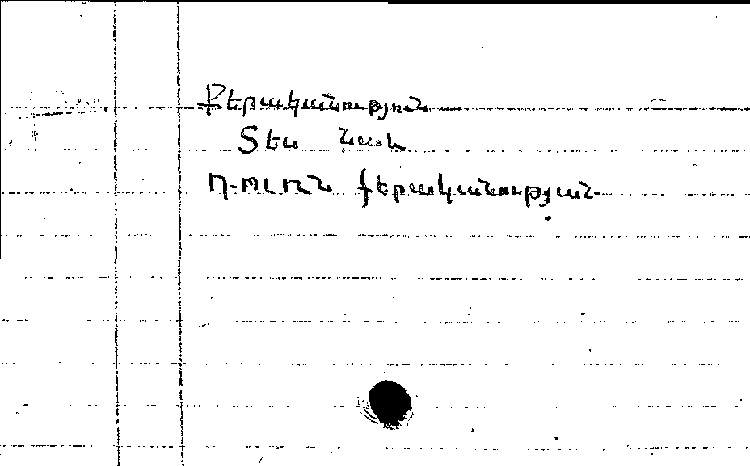 Քերականություն
Տես նաև
Դ-ՈՒՌՆ քերականության